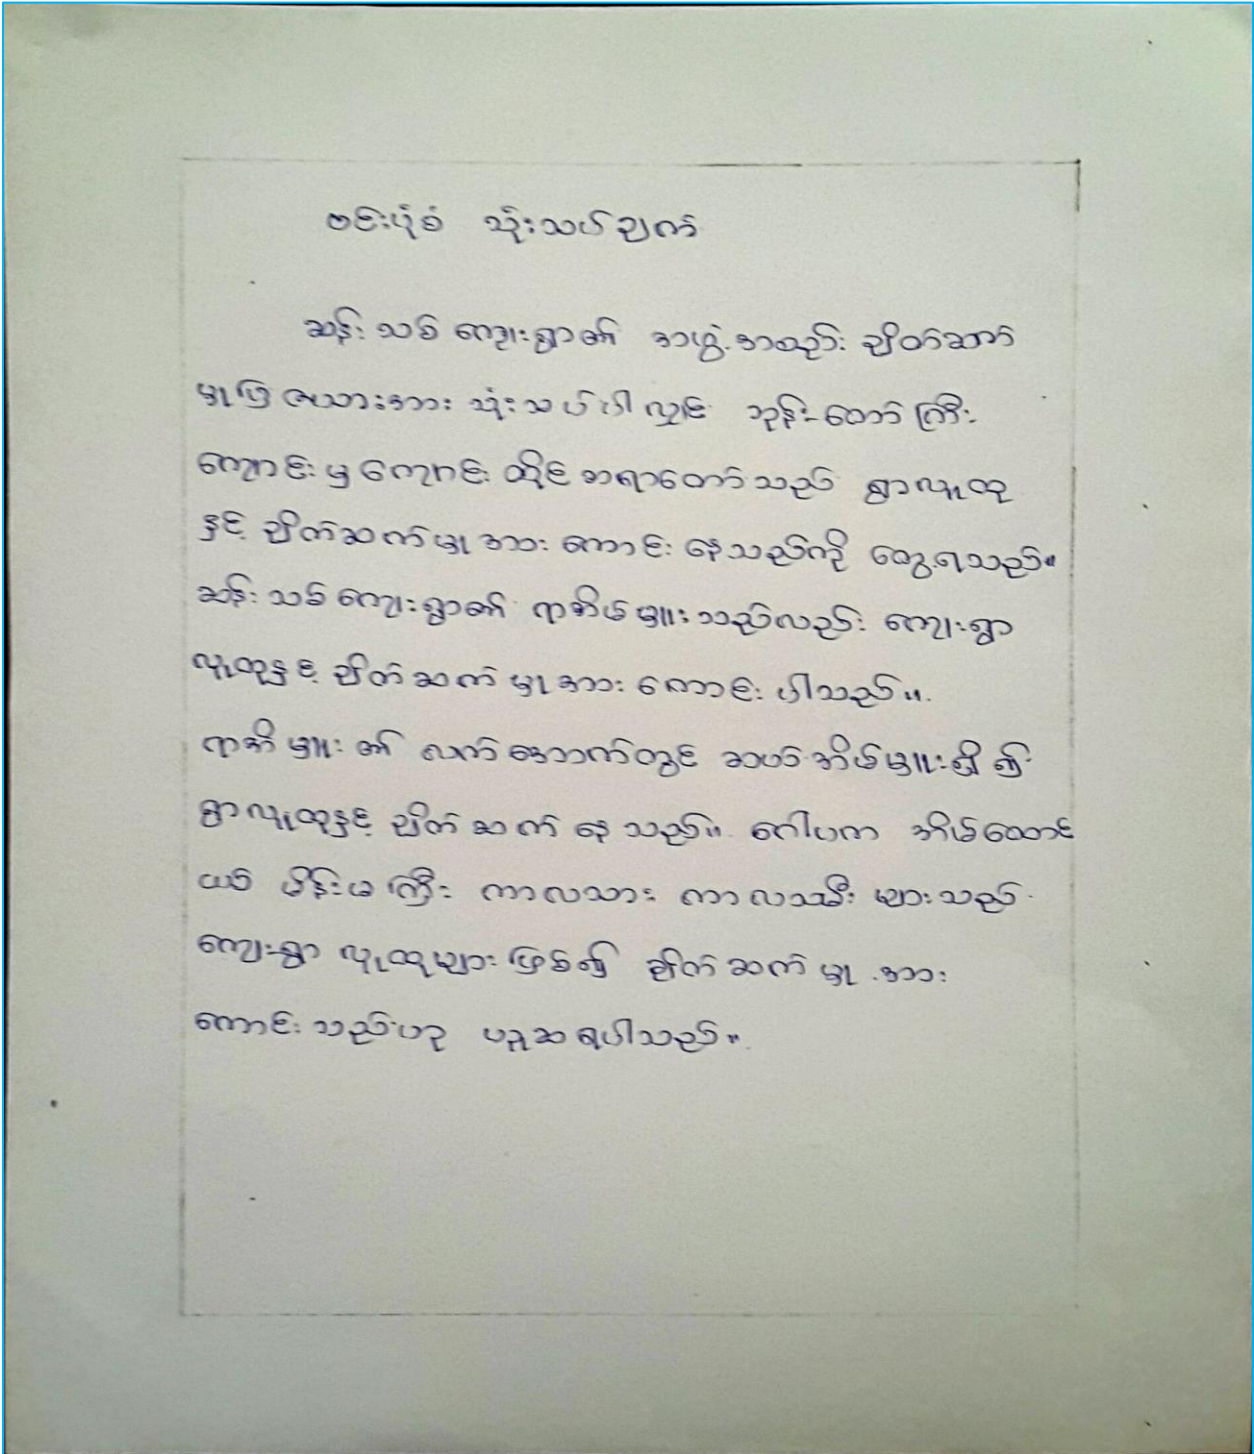 ဗင်းပုံစံ သုံးသပ်ချက်
ဆန်းသစ်ကျေးရွာ၏ အဖွဲ့အစည်း ချိတ်ဆက်
မှုပြ ဇယားအား သုံးသပ်ပါလျှင် ဘုန်းတော်ကြီး
ကျောင်းမှ ကျောင်းထိုင်ဆရာတော်သည် ရွာလူထု
နှင့် ချိတ်ဆက်မှု အား ကောင်းနေသည်ကို တွေ့ရသည်။
ဆန်းသစ်ကျေးရွာ၏ ရာအိမ်မှူးသည်လည်း ကျေးရွာ
လူထုနှင့် ချိတ်ဆက်မှု အားကောင်းပါသည်။
ရာအိမှူး၏ လက်အောက်တွင် ဆယ်အိမ်မှူးရှိ၍
ရွာလူထုနှင့် ချိတ်ဆက်နေသည်။ ဂေါပက အိမ်ထောင်
ယမ် မိန်းမကြီး ကာလသား ကာလသမီးများသည်
ကျေးရွာ လူထုများဖြစ်၍ ချိတ်ဆက်မှု အား
ကောင်းသည်ဟု ယူဆရပါသည်။